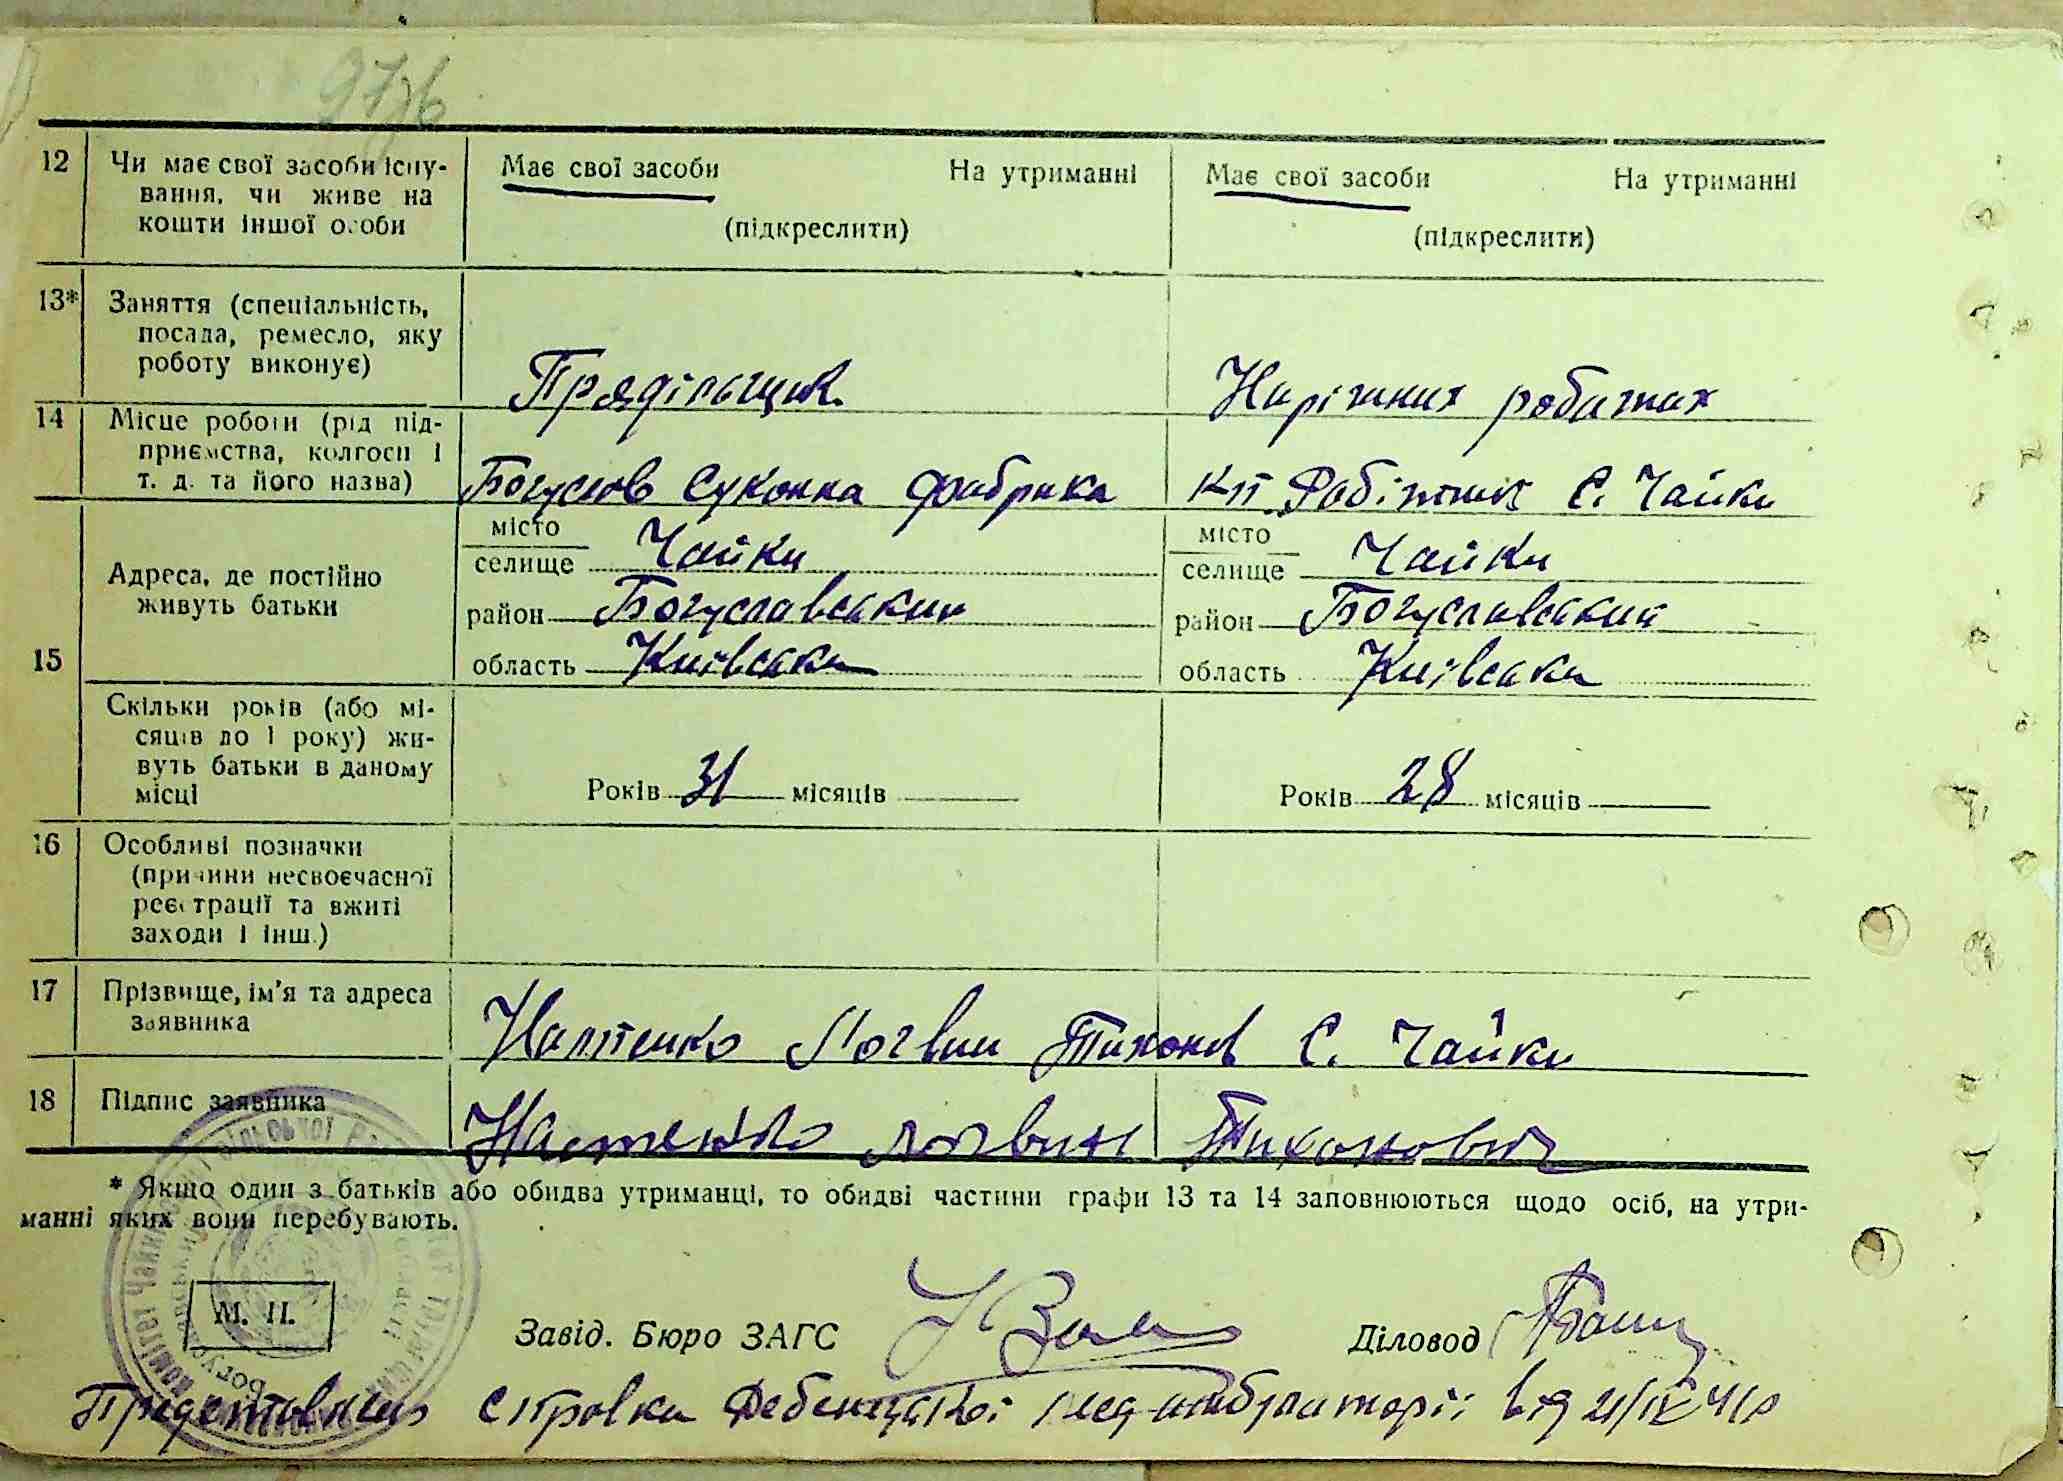 12 Чи має свої засоби існу-
вання, чи живе на
кошти іншої особи
Має свої засоби На утриманні
(підкреслити)
Має свої засоби На утриманні
(підкреслити)
13* Заняття (спеціальність,
посада, ремесло, яку
роботу виконує)
Прядільщик
На ріжних роботах
14 Місце роботи (рід під-
приємства, колгосп і
т. д. та його назва)
Богуслов Суконна фабрика
кп Робітник С. Чайки
15 Адреса, де постійно
живуть батьки
місто
селище Чайки
район Богуславський
область Київська
місто
селище Чайки
район Богуславський
область Київська
Скільки років (або мі-
сяців до 1 року) жи-
вуть батьки в даному
місці
Років 31 місяців
Років 28 місяців
16 Особливі позначки
(причини несвоєчасної
реєстрації та вжиті
заходи і інш.)
17 Прізвище, ім'я та адреса
заявника
Настенко Логвин Тихонов С. Чайки
18 Підпис заявника
Настенко логвин Тихонович
* Якщо один з батьків або обидва утриманці, то обидві частини графи 13 та 14 заповнюються щодо осіб, на утри-
манні яких вони перебувають.
М. П.
Завід. Бюро ЗАГС
Діловод
справка від